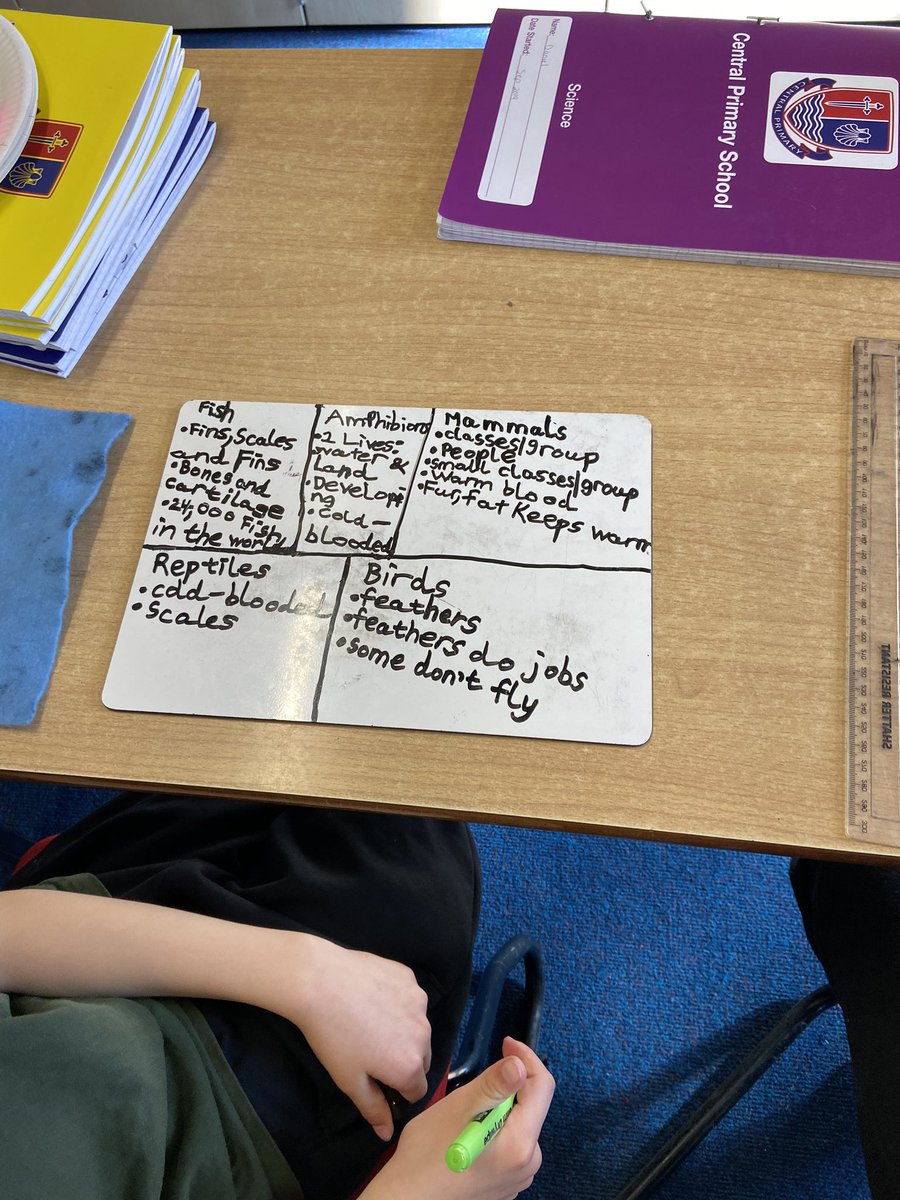 Fish
•Fins, Scales
and Fins
•Bones and
cartilage
•24,000 Fish,
in the world
Amphibions
•2 Lives:
water &
Land
•Developi
ng
•Cold-
blooded
Mammals
•classes/group
•People
•small classes/group
•Warm blood
•Fur, fat Keeps warm
Reptiles
•cold-blooded
•Scales
Birds
•feathers
•feathers do jobs
•some don't fly
Central Primary School
CENTRAL PRIMARY
Science
Name:
Date Started:
SHATTER RESISTANT